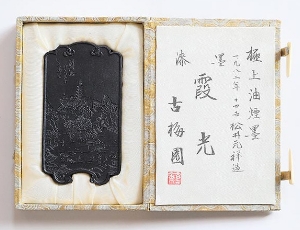 極上油煙墨
一九八二年 十四世 松井元祥造
墨 霞光
漆 古梅園